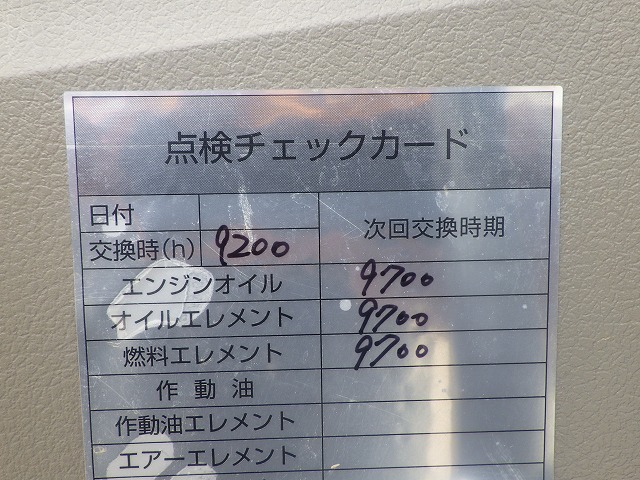 点検チェックカード
日付
次回交換時期
交換時(h) 9200
エンジンオイル 9700
オイルエレメント 9700
燃料エレメント 9700
作動油
作動油エレメント
エアーエレメント